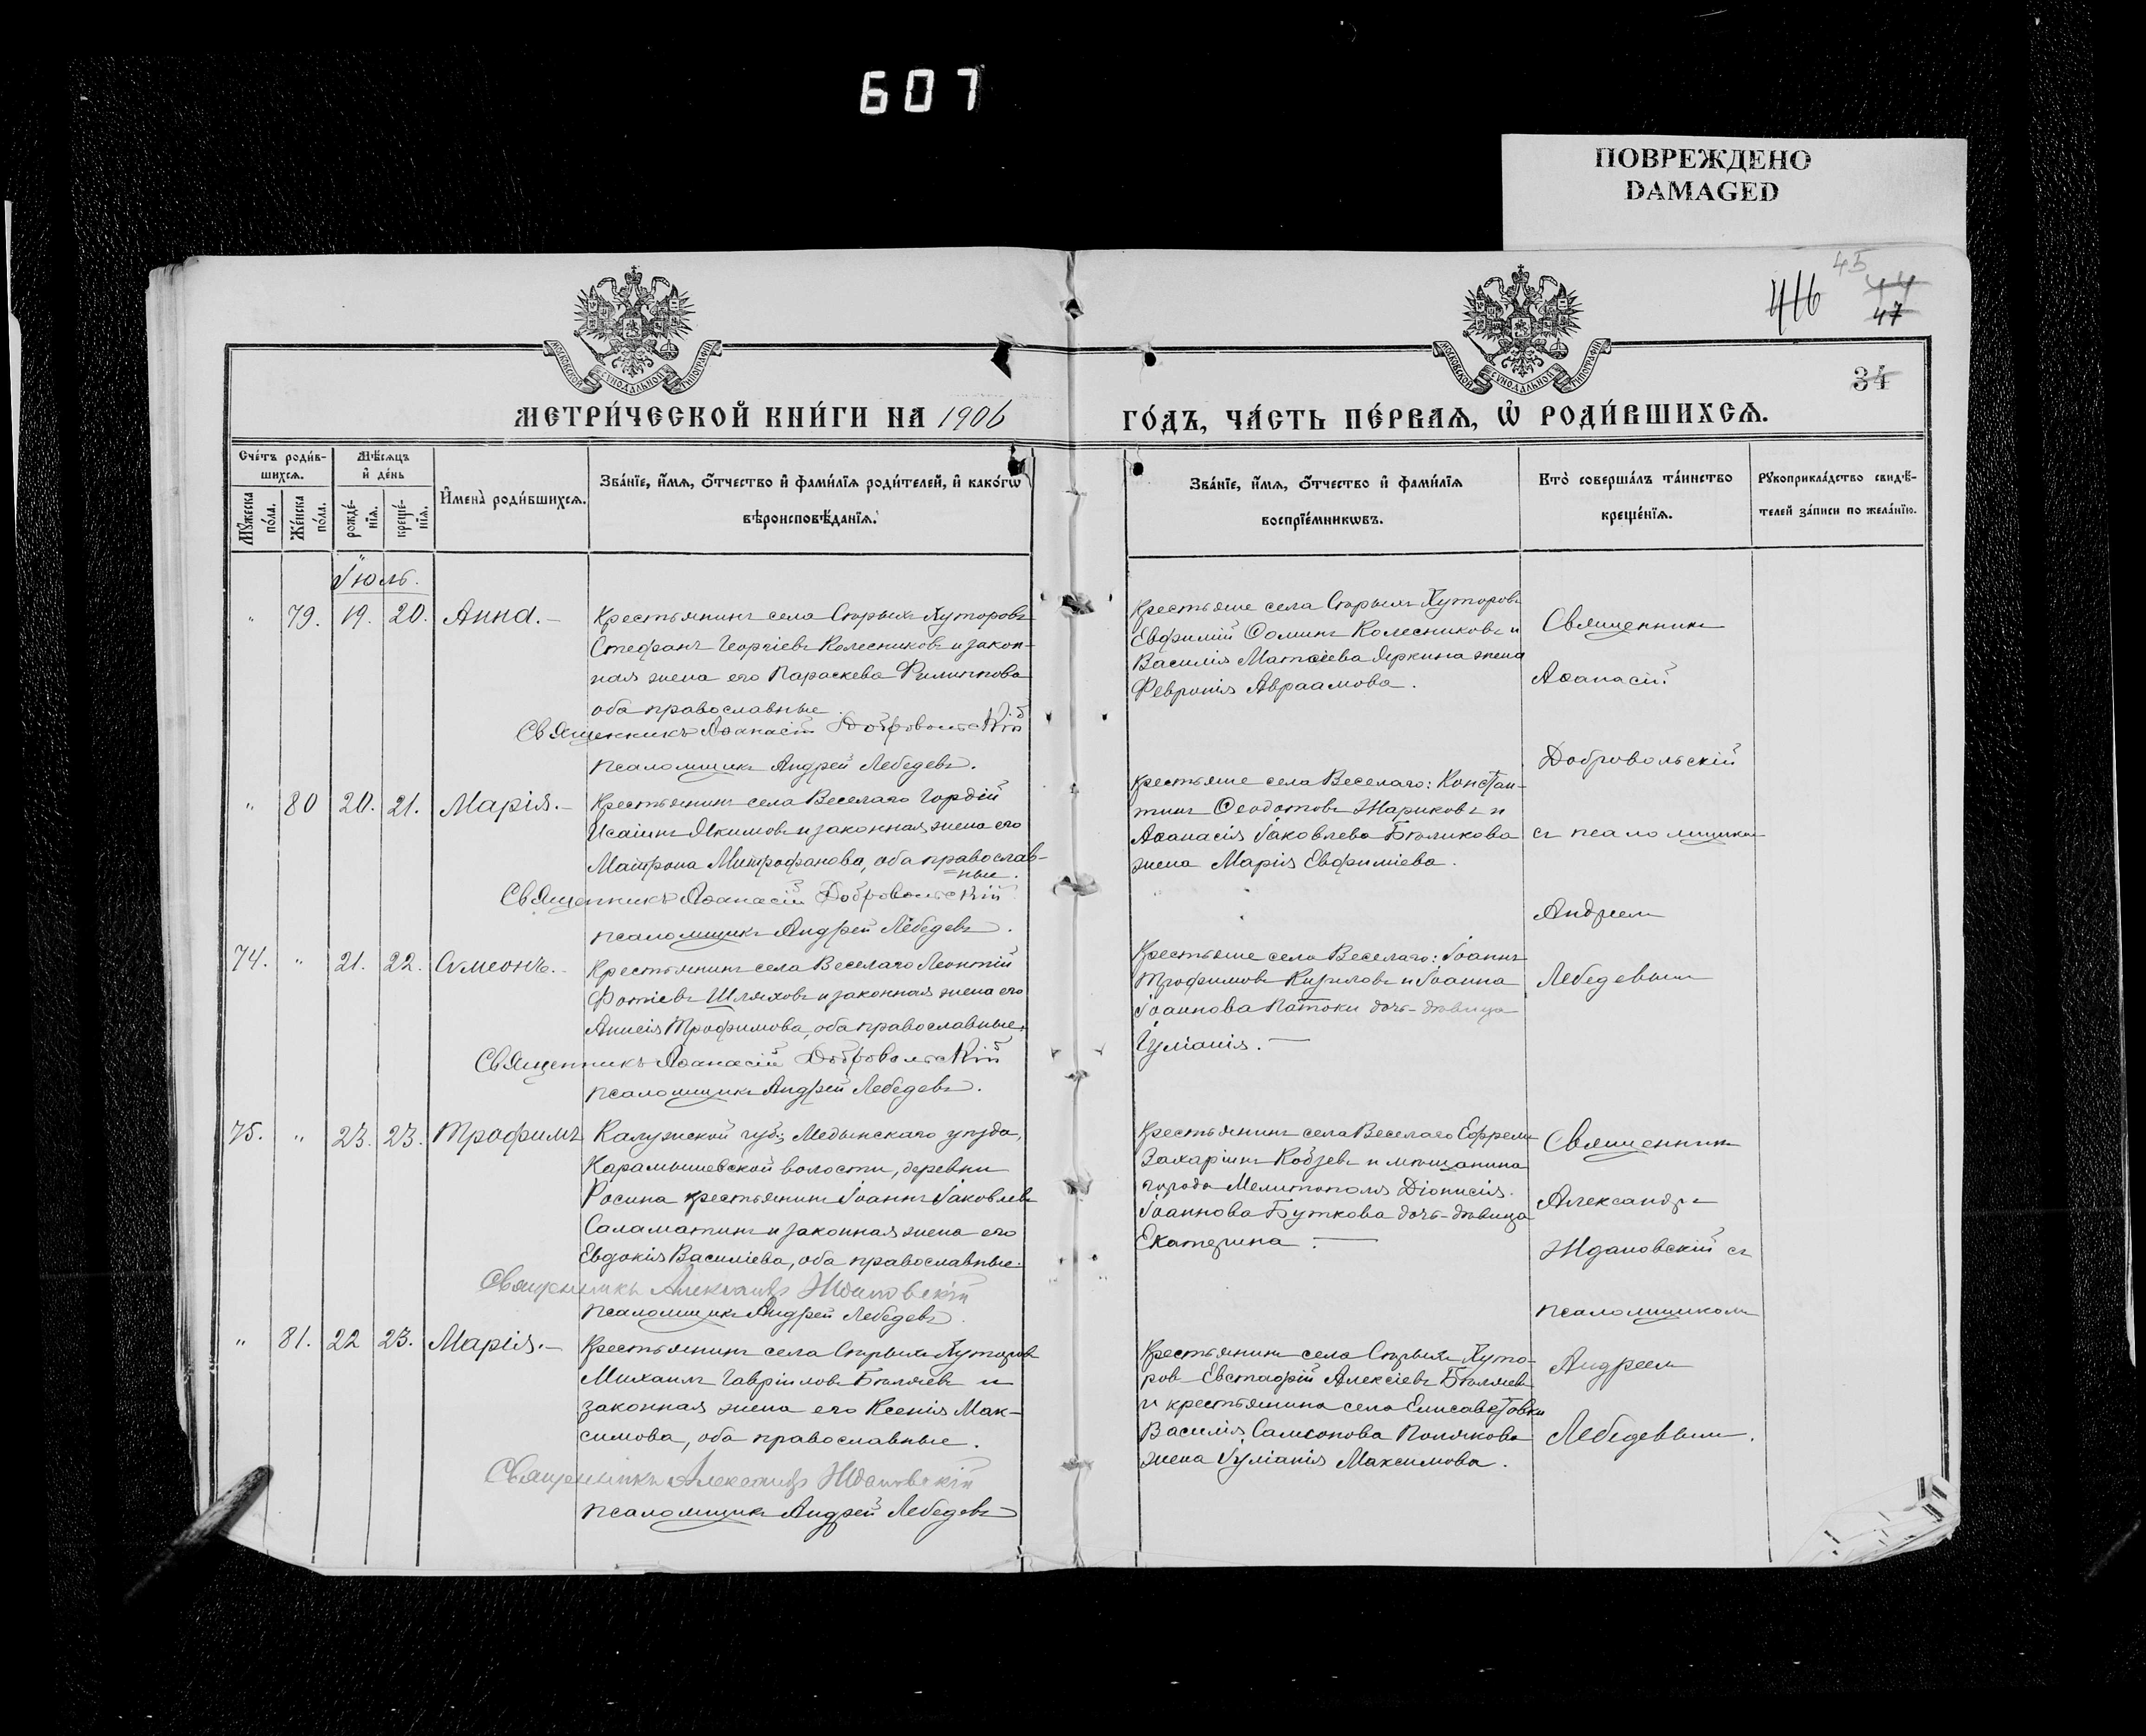 607
ПОВРЕЖДЕНО
DAMAGED
45
446
44
47
34
МОСКОВСКОЙ СѴНОДАЛЬНОЙ ТИПОГРАФІИ
МОСКОВСКОЙ СѴНОДАЛЬНОЙ ТИПОГРАФІИ
МЕТРИ́ЧЕСКОЙ КНИ́ГИ НА 1906
ГО́ДЪ, ЧА́СТЬ ПЕ́РВАѦ, Ѽ РОДИ́ВШИХСѦ.
Сче́тъ роди́в-
шихсѧ.
Мꙋ́жеска по́ла.
Же́нска по́ла.
Мѣ́сѧцъ
и҆ де́нь
рожде́-
нїѧ.
креще́-
нїѧ.
И҆мена̀ роди́вшихсѧ.
Зва́нїе, и҆́мѧ, ѻ҆́тчество и҆ фами́лїѧ роди́телей, и҆ како́гѡ
вѣроисповѣ́данїѧ.
Зва́нїе, и҆́мѧ, ѻ҆́тчество и҆ фами́лїѧ
воспрїе́мникѡвъ.
Кто̀ соверша́лъ та́инство
креще́нїѧ.
Рꙋкоприкла́дство свидѣ́-
телей за́писи по жела́нїю.
Іюль.
" 79. 19. 20. Анна.-
Крестьянинъ села Старыхъ Хуторовъ
Стефанъ Георгіевъ Колесниковъ и закон-
ная жена его Параскева Филиппова
оба православные.
Священникъ Аѳанасій Добровольскій
псаломщикъ Андрей Лебедевъ.
Крестьяне села Старыхъ Хуторовъ
Евфимій Ѳоминъ Колесниковъ и
Василія Матѳіева Яркина жена
Февронія Авраамова.
Священникъ
Аѳанасій
Добровольскій
съ псаломщикомъ
Андреем
Лебедевымъ
" 80 20. 21. Марія.-
Крестьянинъ села Веселаго Гордій
Исаіинъ Якимовъ и законная жена его
Матрона Митрофанова, оба православ-
=ные.
Священникъ Аѳанасій Добровольскій
псаломщикъ Андрей Лебедевъ.
Крестьяне села Веселаго: Констан-
тинъ Ѳеодотовъ Жариковъ и
Аѳанасія Іаковлева Бѣликова
жена Марія Евфиміева.
74. " 21. 22. Сѵмеонъ.-
Крестьянинъ села Веселаго Леонтій
Фотіевъ Шляховъ и законная жена его
Анисія Трофимова, оба православные.
Священникъ Аѳанасій Добровольскій
псаломщикъ Андрей Лебедевъ.
Крестьяне села Веселаго: Іоаннъ
Трофимовъ Кириловъ и Іоанна
Іоаннова Патоки дочь-дѣвица
Іуліанія.—
75. " 23. 23. Трофимъ
Калужской губ., Медынскаго уѣзда,
Карамышевской волости, деревни
Росина крестьянинъ Іоаннъ Іаковлевъ
Саламатинъ и законная жена его
Евдокія Василіева, оба православные.
Священникъ Александръ Ждановскій
псаломщикъ Андрей Лебедевъ.
Крестьянинъ села Веселаго Ефремъ
Захаріинъ Кобзевъ и мѣщанина
города Мелитополя Діонисія
Іоаннова Буткова дочь-дѣвица
Екатерина.—
Священникъ
Александръ
Ждановскій съ
псаломщикомъ
Андреем
Лебедевымъ.
" 81. 22 23. Марія.-
Крестьянинъ села Старыхъ Хуторовъ
Михаилъ Гавріиловъ Бѣляевъ и
законная жена его Ксенія Мак-
симова, оба православные.
Священникъ Александръ Ждановскій
псаломщикъ Андрей Лебедевъ
Крестьянинъ села Старыхъ Хуто-
ров Евстафій Алексіевъ Бѣляевъ
и крестьянина села Елисаветовки
Василія Самсонова Полякова
жена Іуліанія Максимова.